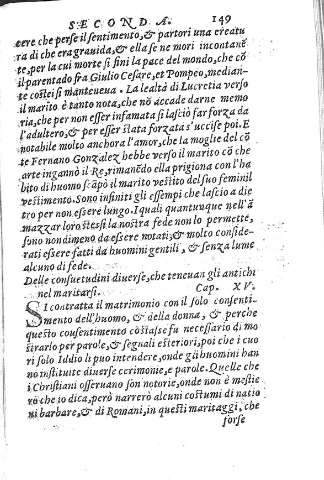 SECONDA. 149
vere che perse il sentimento, & partori una creatu
ra di che era gravida, & ella se ne mori incontanē
te, per la cui morte si fini la pace del mondo, che cō
il parentado fra Giulio Cesare, et Pompeo, median-
te costei si manteneua. La lealtà di Lucretia verso
il marito è tanto nota, che nō accade darne memo
ria, che per non esser infamata si lasciò far forza da
l'adultero, & per esser stata forzata s'uccise poi. E
notabile molto anchora l'amor, che la moglie del cō
te Fernano Gonzalez hebbe verso il marito cō che
arte ingannò il Re, rimanēdo ella prigiona con l'ha
bito di huomo scāpò il marito vestito del suo feminil
vestimento. Sono infiniti gli essempi che lascio a die
tro per non essere lungo. I quali quantunque nell'ā
mazzar loro stessi la nostra fede non lo permette,
sono nondimeno da essere notati, & molto conside-
rati essere fatti da huomini gentili, & senza lume
alcuno di fede.
Delle consuetudini diuerse, che teneuan gli antichi
nel maritarsi. Cap. XV.
SI contratta il matrimonio con il solo consenti-
mento dell'huomo, & della donna, & perche
questo consentimento cōstasse fu necessario di mo
strarlo per parole, & segnali esteriori, poi che i cuo
ri solo Iddio li puo intendere, onde gli huomini han
no instituite diuerse cerimonie, e parole. Quelle che
i Christiani osseruano son notorie, onde non è mestie
ro che io dica, però narrerò alcuni costumi di natio
ni barbare, & di Romani, in questi maritaggi, che
forse